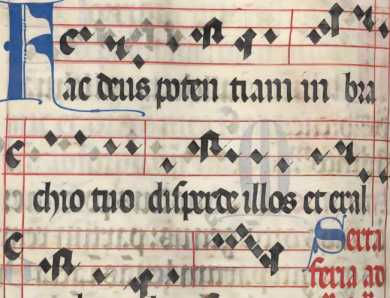 Fac deus poten tiam in bra
chio tuo disperde illos et exal
Sexta
feria an